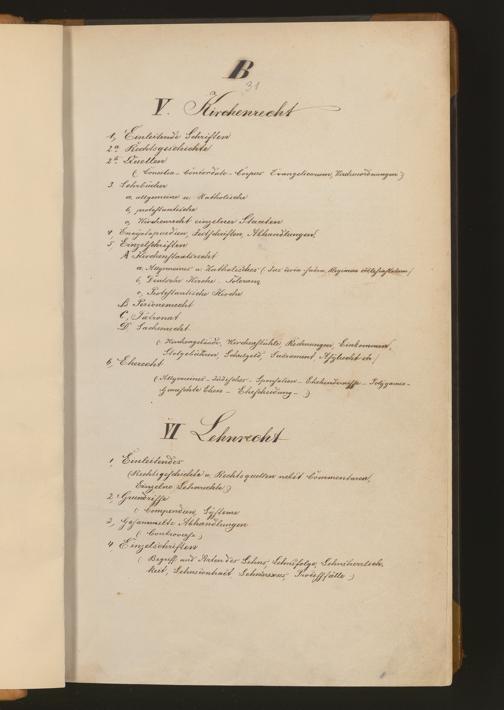 B
31
V. Kirchenrecht
1, Einleitende Schriften
2a Rechtsgeschichte
2b Quellen
( Concilia - Concordate - Corpus Evangelicorum, Kirchenordnungen )
3 Lehrbücher
a. allgemeine u. Katholische
b, protestantische
c, Kirchenrecht einzelner Staaten
4, Encyclopaedien, Zeitschriften, Abhandlungen.
5 Einzelschriften
A Kirchenstaatsrecht
a. Allgemeines u. Katholisches ( Jus circa sacra, Regimen
b, Deutsche Kirche - Toleranz
c, Protestantische Kirche
B Personenrecht
C, Patronat
D. Sachenrecht
( Kirchengebäude, Kirchenstühle, Rechnungen, Einkommen,
Stolgebühren, Schulgeld, Sacrament, Asylrecht
6, Eherecht
( Allgemeines - Jüdisches - Sponsalien - Ehehindernisse - Polygamie -
Gemischte Ehen - Ehescheidung - )
VI Lehnrecht
1, Einleitendes
( Rechtsgeschichte u. Rechtsquellen nebst Commentaren,
Einzelne Lehnrechte )
2, Grundrisse
( Compendien, Systeme
3, Gesammelte Abhandlungen
( Controverse )
4 Einzelschriften
( Begriff und Arten des Lehns, Lehnsfolge, Lehnsherrlich-
keit, Lehnseinheit Prozessfälle )